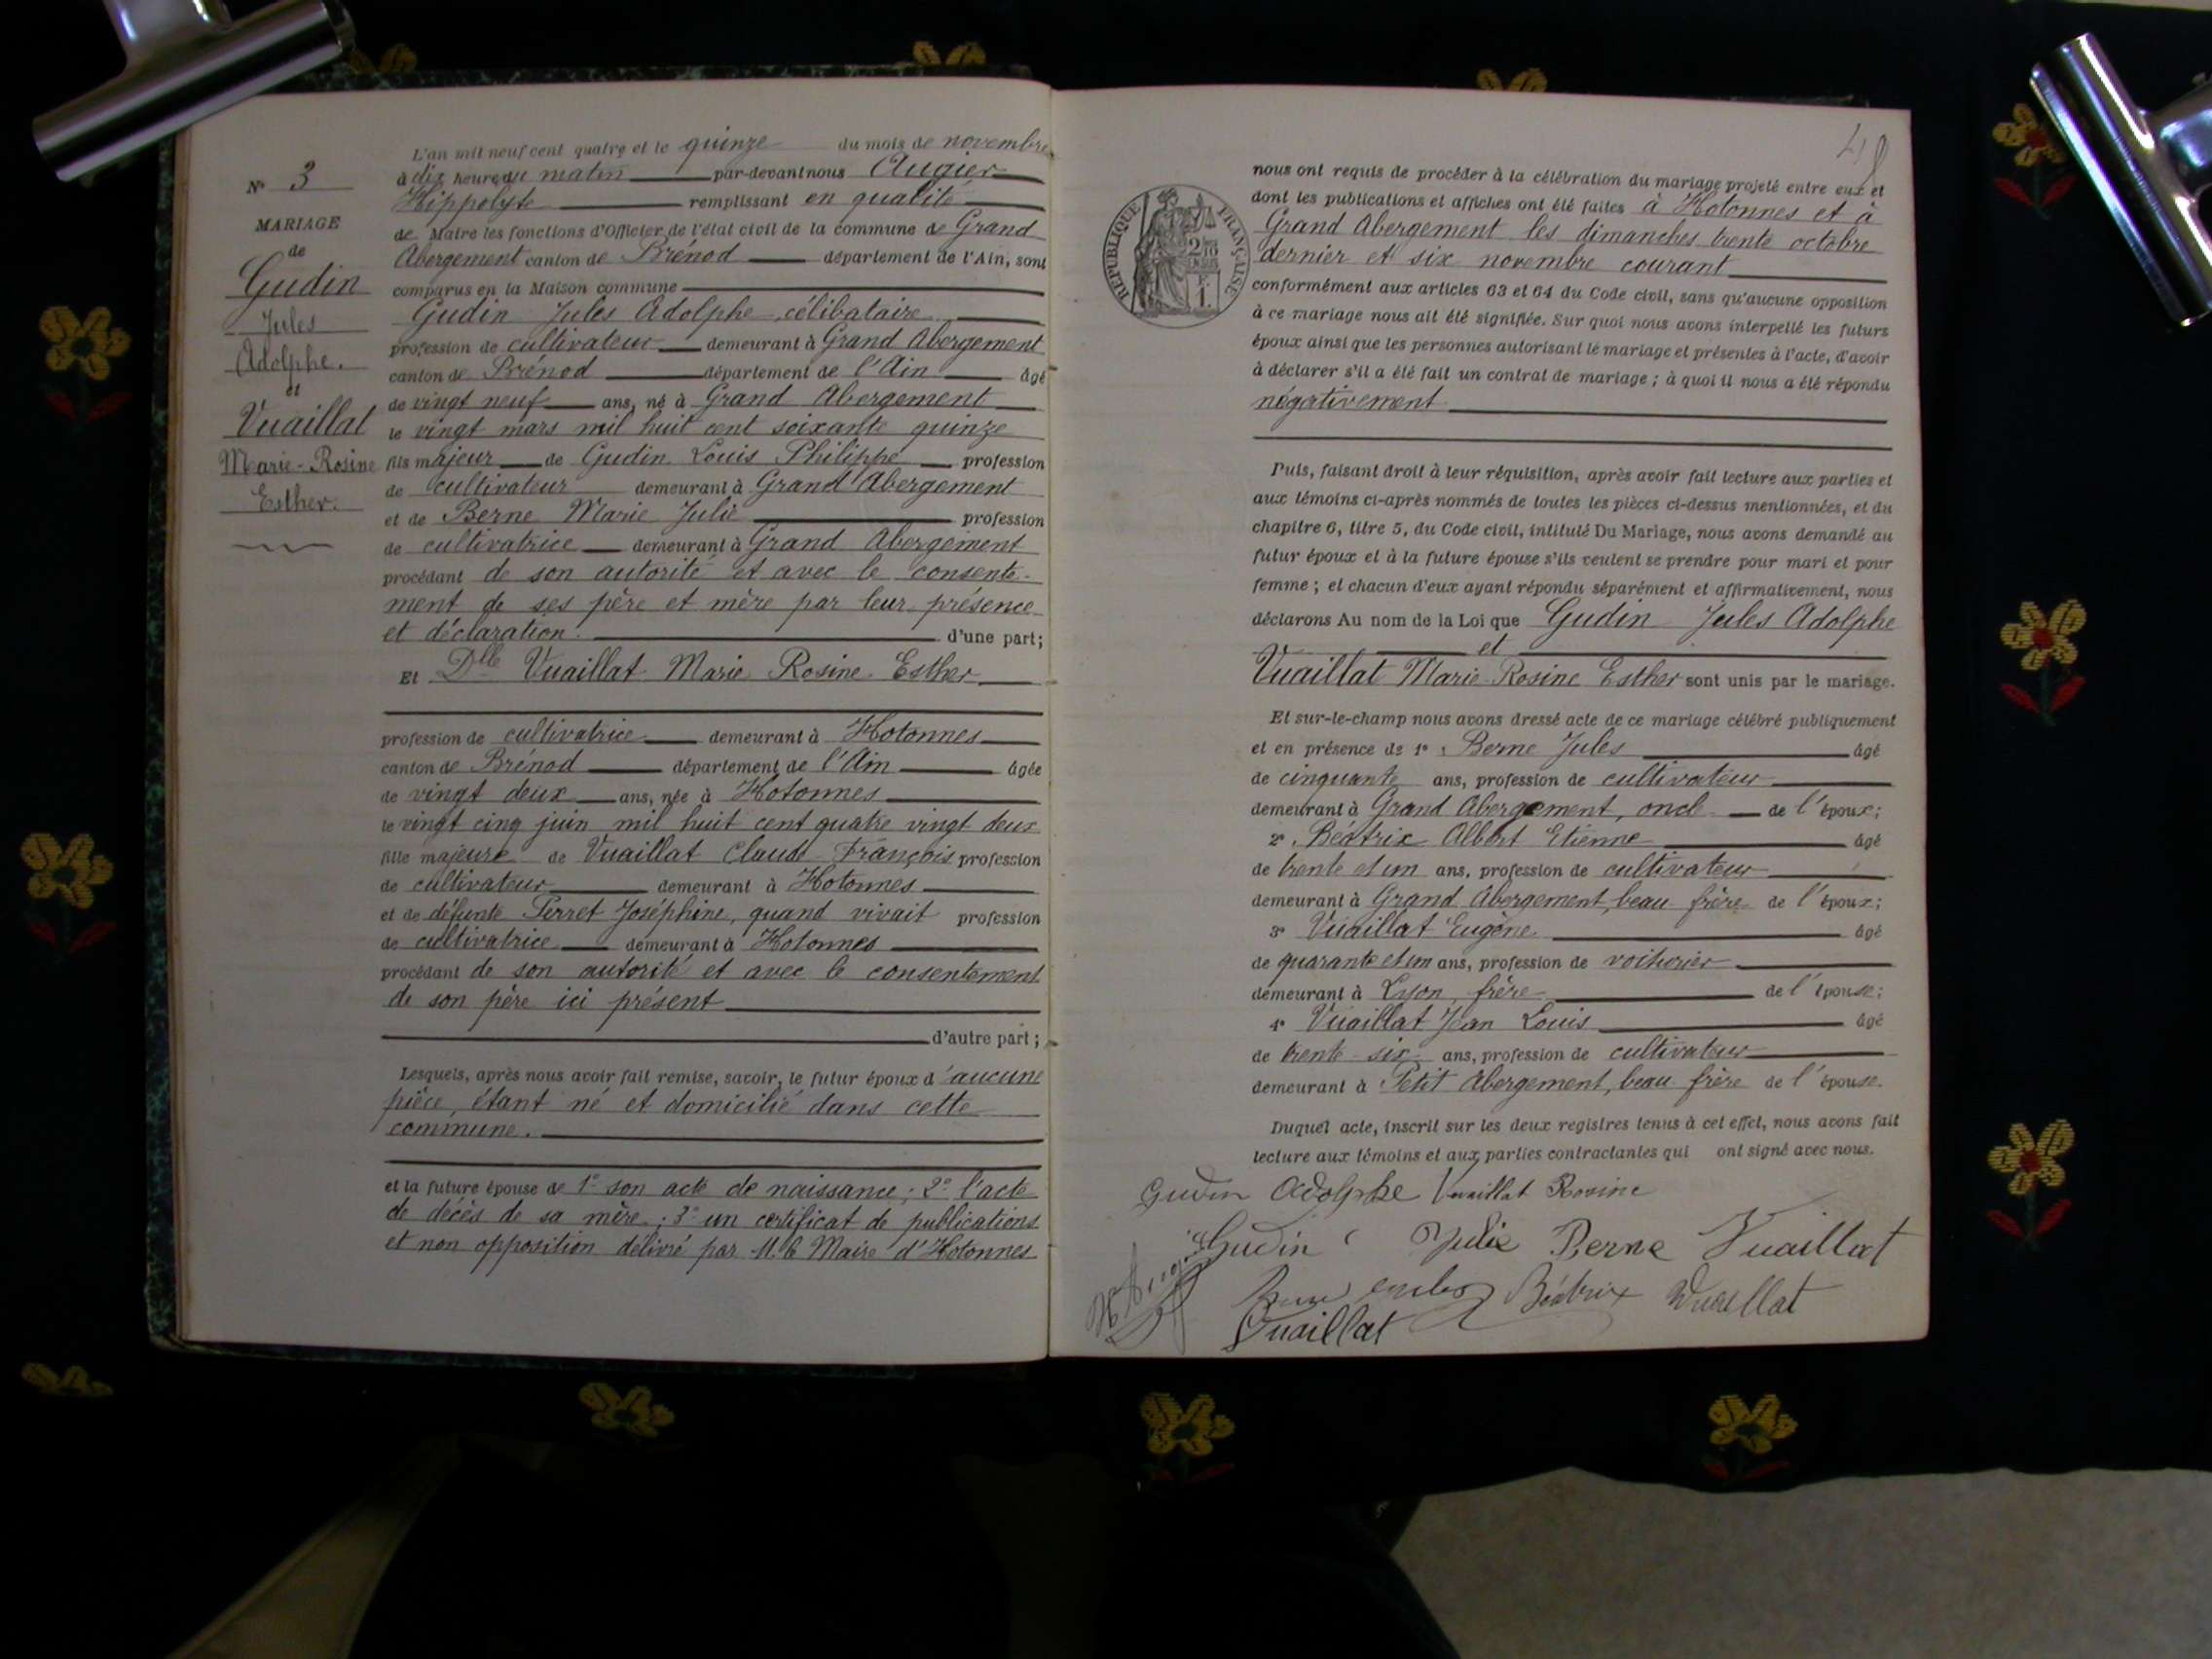 N° 3
MARIAGE
de
Gudin
Jules
Adolphe.
et
Vuaillat
Marie-Rosine
Esther.
L'an mil neuf cent quatre et le quinze du mois de novembre
à dix heures du matin par-devant nous Augier
Hippolyte remplissant en qualité
de Maire les fonctions d'Officier de l'état civil de la commune de Grand
Abergement canton de Brénod département de l'Ain, sont
comparus en la Maison commune
Gudin Jules Adolphe, célibataire,
profession de cultivateur demeurant à Grand Abergement
canton de Brénod département de l'Ain âgé
de vingt neuf ans, né à Grand Abergement
le vingt mars mil huit cent soixante quinze
fils majeur de Gudin Louis Philippe profession
de cultivateur demeurant à Grand Abergement
et de Berne Marie Julie profession
de cultivatrice demeurant à Grand Abergement
procédant de son autorité et avec le consente-
ment de ses père et mère par leur présence
et déclaration. d'une part;
Et Dlle Vuaillat Marie Rosine Esther
profession de cultivatrice demeurant à Hotonnes
canton de Brénod département de l'Ain âgée
de vingt deux ans, née à Hotonnes
le vingt cinq juin mil huit cent quatre vingt deux
fille majeure de Vuaillat Claude François profession
de cultivateur demeurant à Hotonnes
et de défunte Perret Joséphine, quand vivait profession
de cultivatrice demeurant à Hotonnes
procédant de son autorité et avec le consentement
de son père ici présent
d'autre part;
Lesquels, après nous avoir fait remise, savoir, le futur époux d'aucune
pièce, étant né et domicilié dans cette
commune.
et la future épouse de 1° son acte de naissance; 2° l'acte
de décès de sa mère; 3° un certificat de publications
et non opposition délivré par M. le Maire d'Hotonnes
48
RÉPUBLIQUE FRANÇAISE
nous ont requis de procéder à la célébration du mariage projeté entre eux et
dont les publications et affiches ont été faites à Hotonnes et à
Grand Abergement les dimanches trente octobre
dernier et six novembre courant
conformément aux articles 63 et 64 du Code civil, sans qu'aucune opposition
à ce mariage nous ait été signifiée. Sur quoi nous avons interpellé les futurs
époux ainsi que les personnes autorisant le mariage et présentes à l'acte, d'avoir
à déclarer s'il a été fait un contrat de mariage; à quoi il nous a été répondu
négativement
Puis, faisant droit à leur réquisition, après avoir fait lecture aux parties et
aux témoins ci-après nommés de toutes les pièces ci-dessus mentionnées, et du
chapitre 6, titre 5, du Code civil, intitulé Du Mariage, nous avons demandé au
futur époux et à la future épouse s'ils veulent se prendre pour mari et pour
femme; et chacun d'eux ayant répondu séparément et affirmativement, nous
déclarons Au nom de la Loi que Gudin Jules Adolphe
et
Vuaillat Marie-Rosine Esther sont unis par le mariage.
Et sur-le-champ nous avons dressé acte de ce mariage célébré publiquement
et en présence de 1° : Berne Jules âgé
de cinquante ans, profession de cultivateur
demeurant à Grand Abergement, oncle de l'époux;
2° Béatrix Albert Etienne âgé
de trente et un ans, profession de cultivateur
demeurant à Grand Abergement, beau frère de l'époux;
3° Vuaillat Eugène âgé
de quarante et un ans, profession de voiturier
demeurant à Lyon, frère de l'épouse;
4° Vuaillat Jean Louis âgé
de trente-six ans, profession de cultivateur
demeurant à Petit Abergement, beau frère de l'épouse.
Duquel acte, inscrit sur les deux registres tenus à cet effet, nous avons fait
lecture aux témoins et aux parties contractantes qui ont signé avec nous.
Gudin Adolphe Vuaillat Rosine
Gudin Julie Berne Vuaillat
Béatrix Vuaillat
Vuaillat